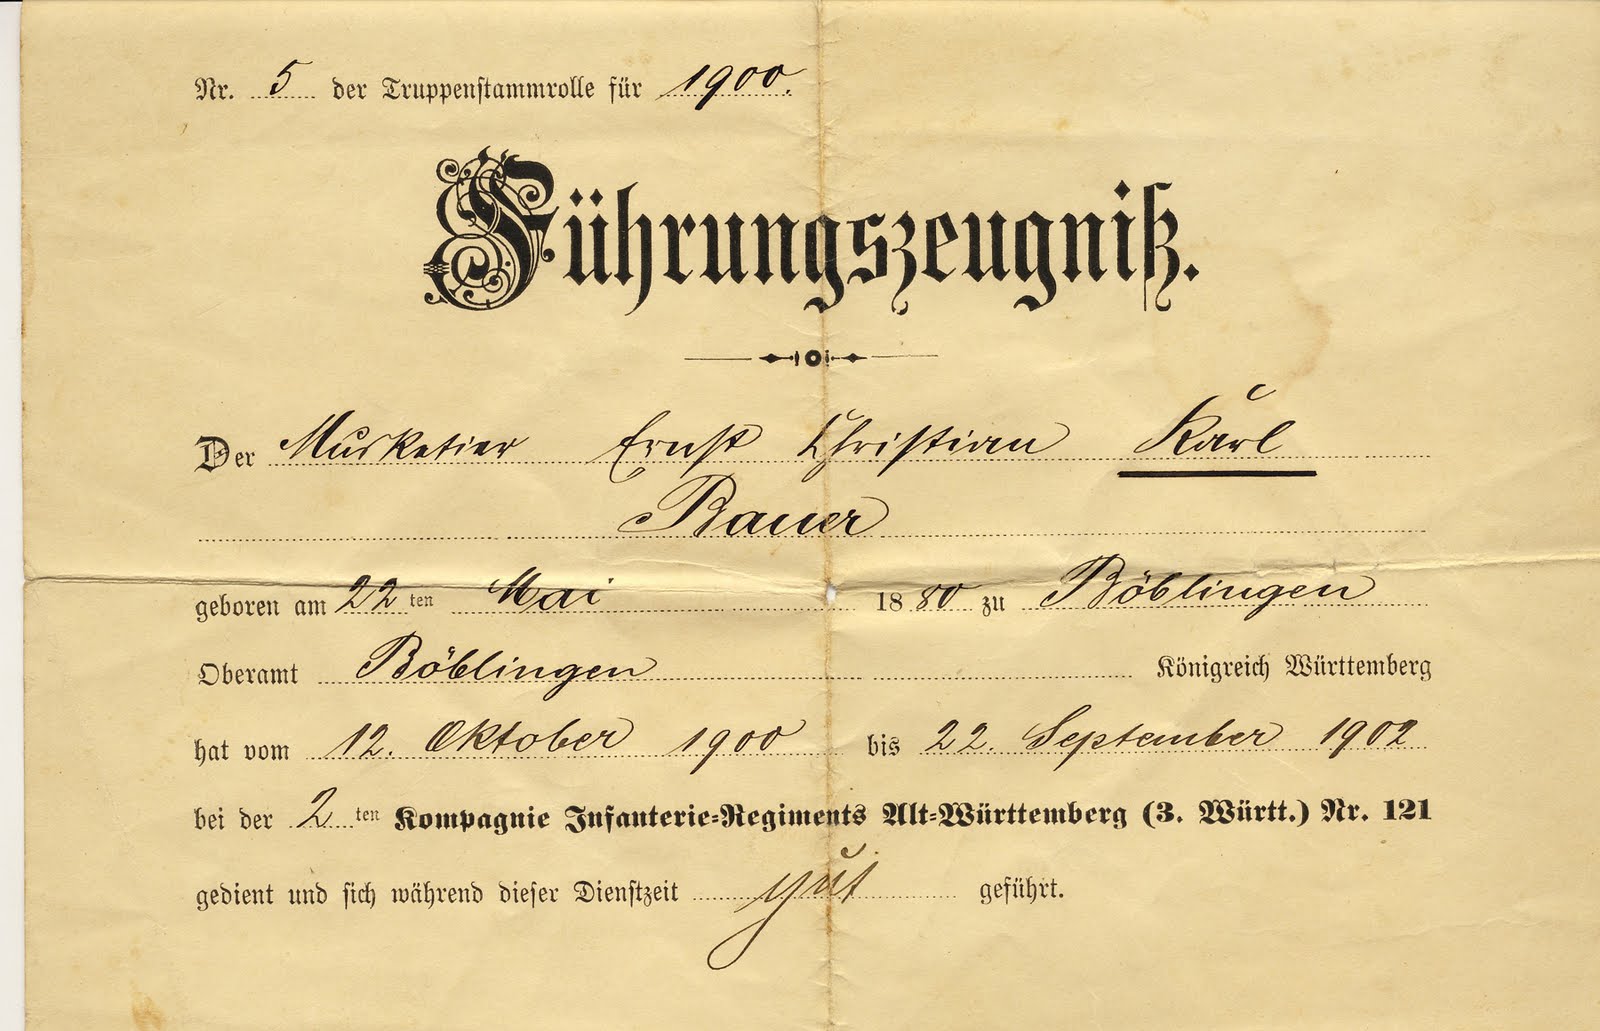 Nr. 5 der Truppenstammrolle für 1900.
Führungszeugniß.
Der Musketier Ernst Christian Karl
Bauer
geboren am 22ten Mai 1880 zu Böblingen
Oberamt Böblingen Königreich Württemberg
hat vom 12. Oktober 1900 bis 22. September 1902
bei der 2ten Kompagnie Infanterie-Regiments Alt-Württemberg (3. Württ.) Nr. 121
gedient und sich während dieser Dienstzeit gut geführt.